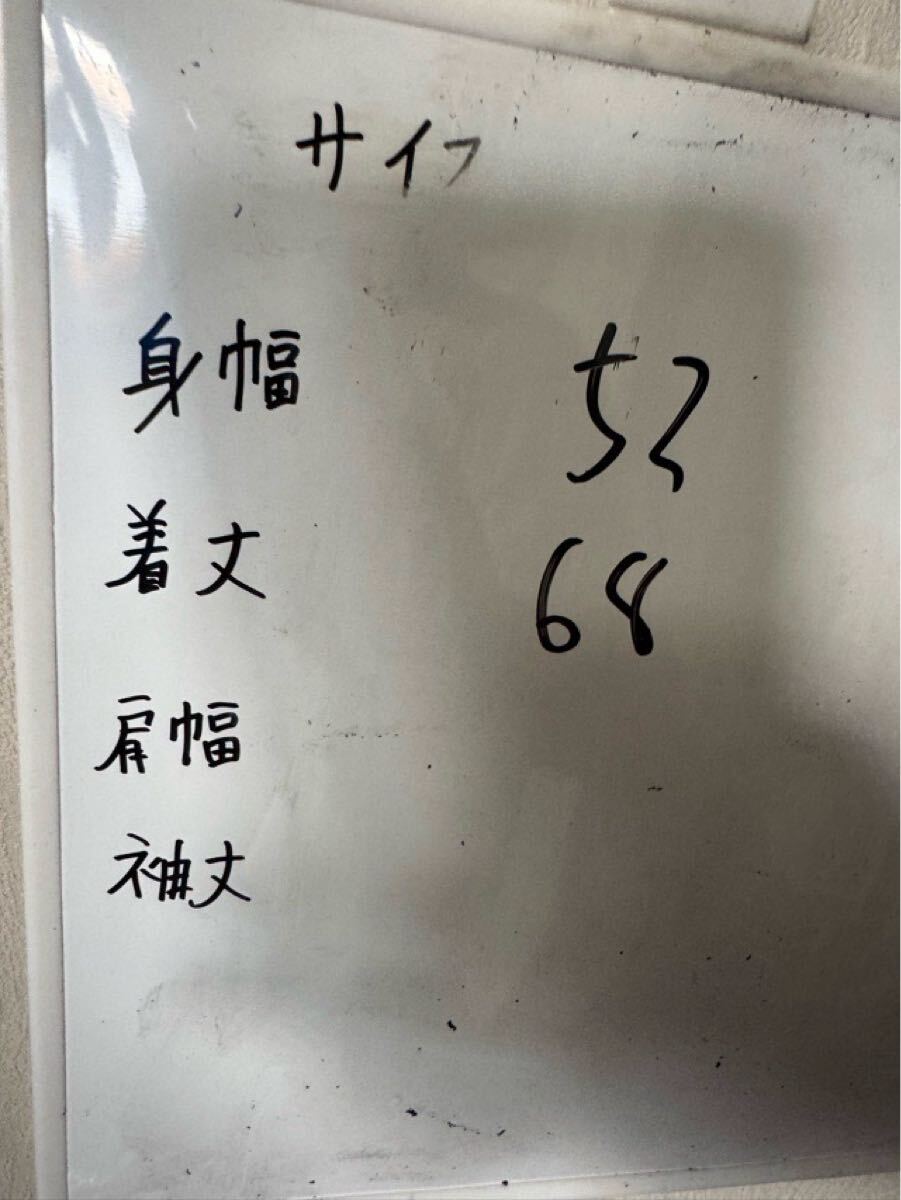 サイフ
身幅 52
着丈 68
肩幅
袖丈